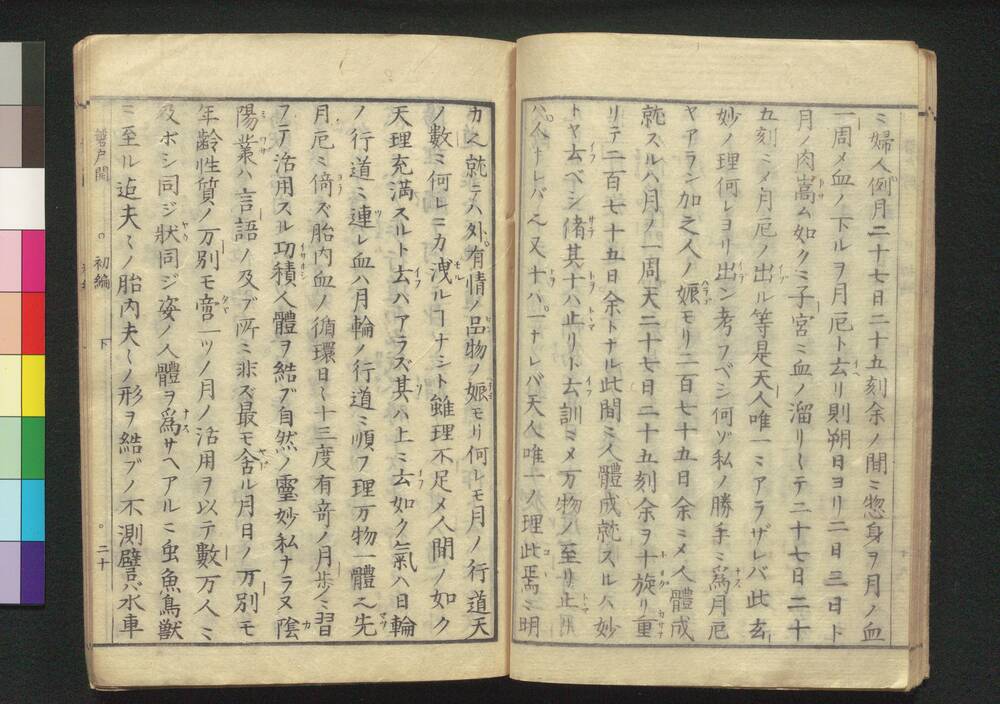 ミ婦人例月二十七日二十五刻余ノ間ミ惣身ヲ月ノ血
一周メ血ノ下ルヲ月厄ト云リ則朔日ヨリ二日三日ト
月ノ肉嵩ム如クミ子宮ミ血ノ溜リ〳〵テ二十七日二十
五刻ミメ月厄ノ出ル等是天人唯一ミアラザレバ此玄
妙ノ理何レヨリ出ン考フベシ何ゾ私ノ勝手ミ為月厄
ヤアラン加之人ノ娠モリ二百七十五日余ミメ人體成
就スルハ月ノ一周天二十七日二十五刻余ヲ十旋リ重
リテ二百七十五日余トナル此間ミ人體成就スルハ妙
トヤ云ベシ偖其十ハ止リト云訓ミメ万物ノ至リ止ル
ハ人ナレバ又十ハ一ナレバ天人唯一ノ理此焉ミ明
カ就テハ外有情ノ品物ノ娠モリ何レモ月ノ行道天
ノ數ミ何レミカ洩ルヿナシト雖理不足メ人間ノ如ク
天理充満スルト云ハアラズ其ハ上ミ云如ク氣ハ日輪
ノ行道ミ連レ血ハ月輪ノ行道ミ順フ理万物一體先
月厄ミ倚ズ胎内血ノ循環日〳〵十三度有奇ノ月歩ミ習
フテ活用スル功積人體ヲ結ブ自然ノ靈妙私ナラヌ陰
陽業ハ言語ノ及ブ所ミ非ズ最モ舎ル月日ノ万別モ
年齢性質ノ万別モ啻一ツノ月ノ活用ヲ以テ數万人ミ
及ボシ同ジ狀同ジ姿ノ人體ヲ為サヘアルミ虫魚鳥獣
ミ至ル迠夫〳〵ノ胎内夫〳〵ノ形ヲ結ブノ不測譬バ水車
初編 下 二十